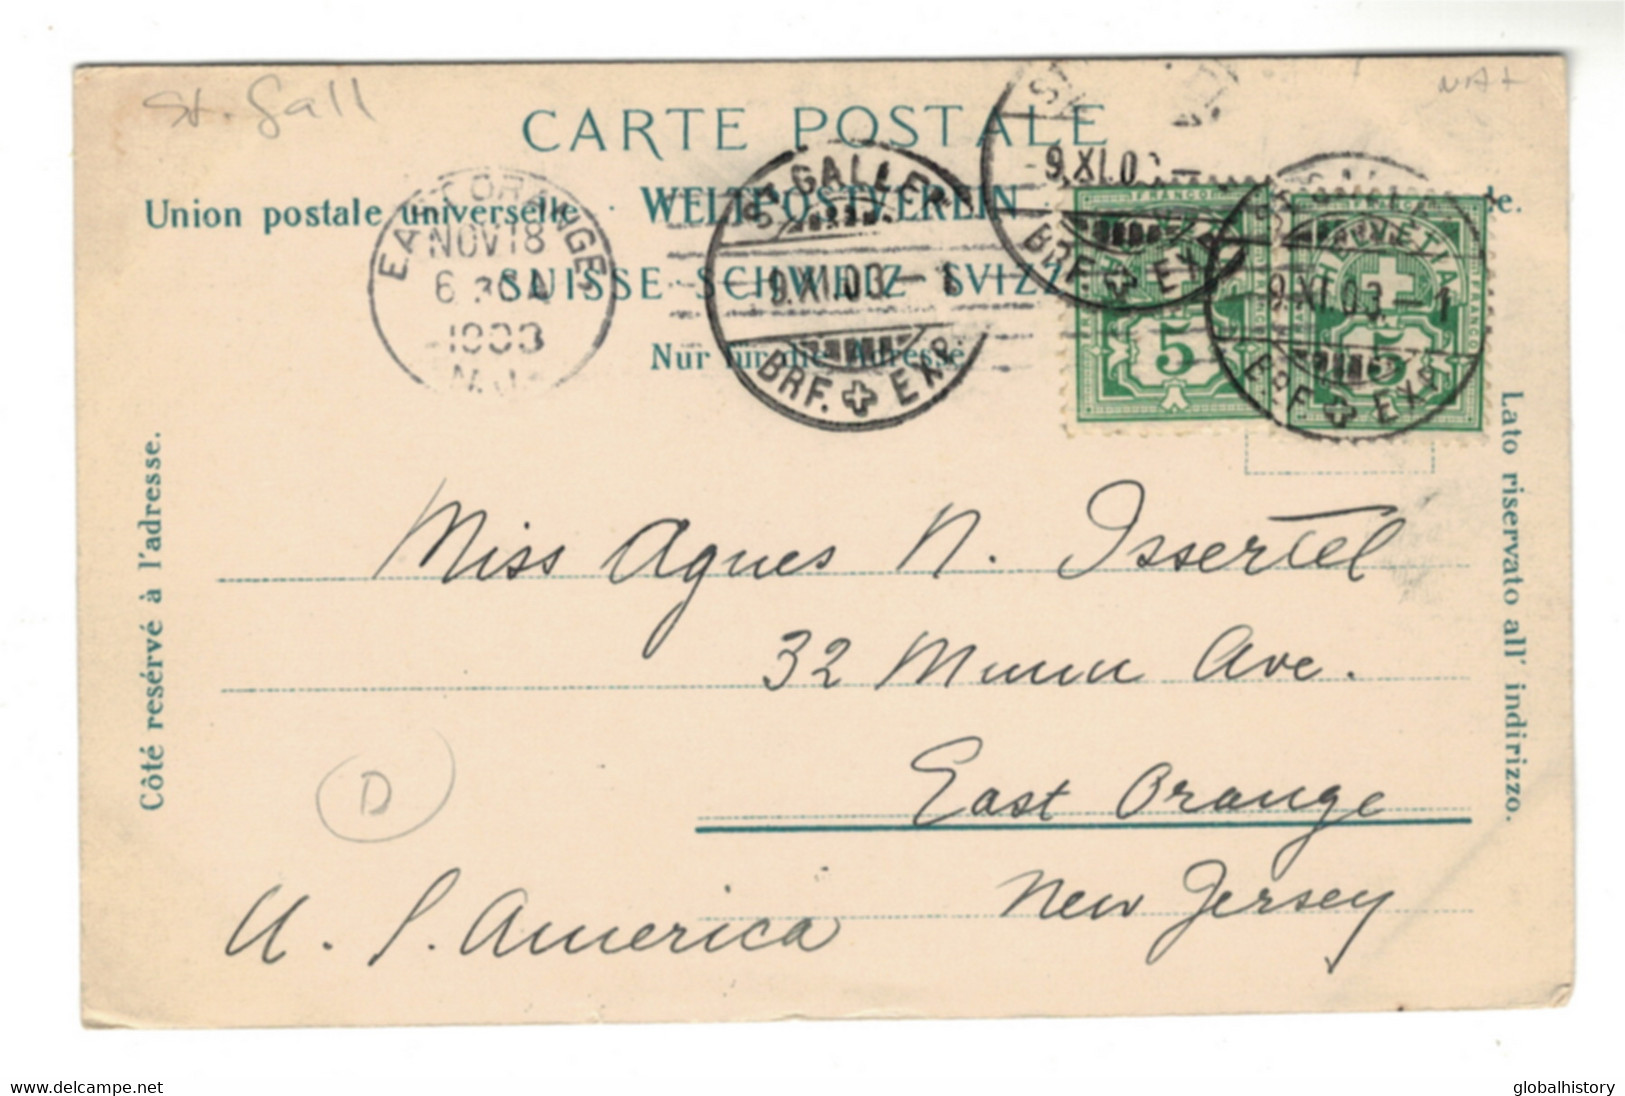 St. Gall
CARTE POSTALE
Union postale universelle · WELTPOSTVEREIN
SUISSE SCHWEIZ SVIZZ
Nur für die Adresse
EAST ORANGE
NOV 18
6 30 A
1903
N.J.
ST. GALLEN
9.XI.03 – 1
BRF. EXP.
9.XI.0
BRF. EXP
FRANCO
5
ST. GALLEN
9.XI.03 – 1
BRF. EXP.
HELVETIA
FRANCO
5
Côté resérvé à l'adresse.
Lato riservato all' indirizzo.
Miss Agnes N. Issertel
32 Munn Ave.
East Orange
New Jersey
U. S. America
D
www.delcampe.net
globalhistory